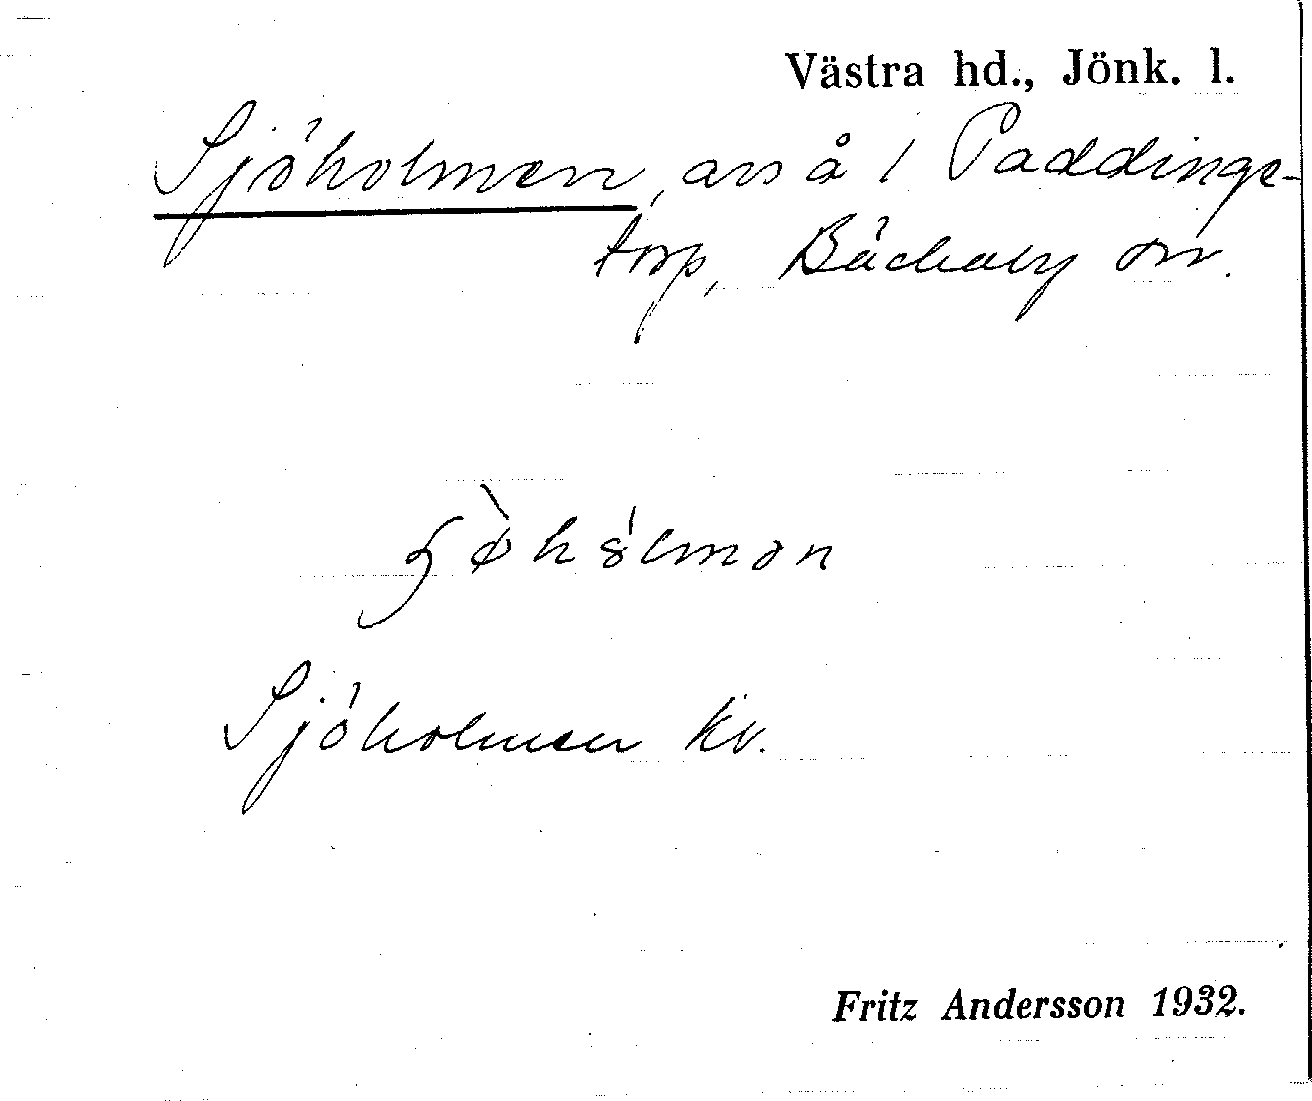 Västra hd., Jönk. l.
Sjöholmen, avs å / Paddinge-
torp, Bäckaby sn.
Sjöholmen kv.
Fritz Andersson 1932.